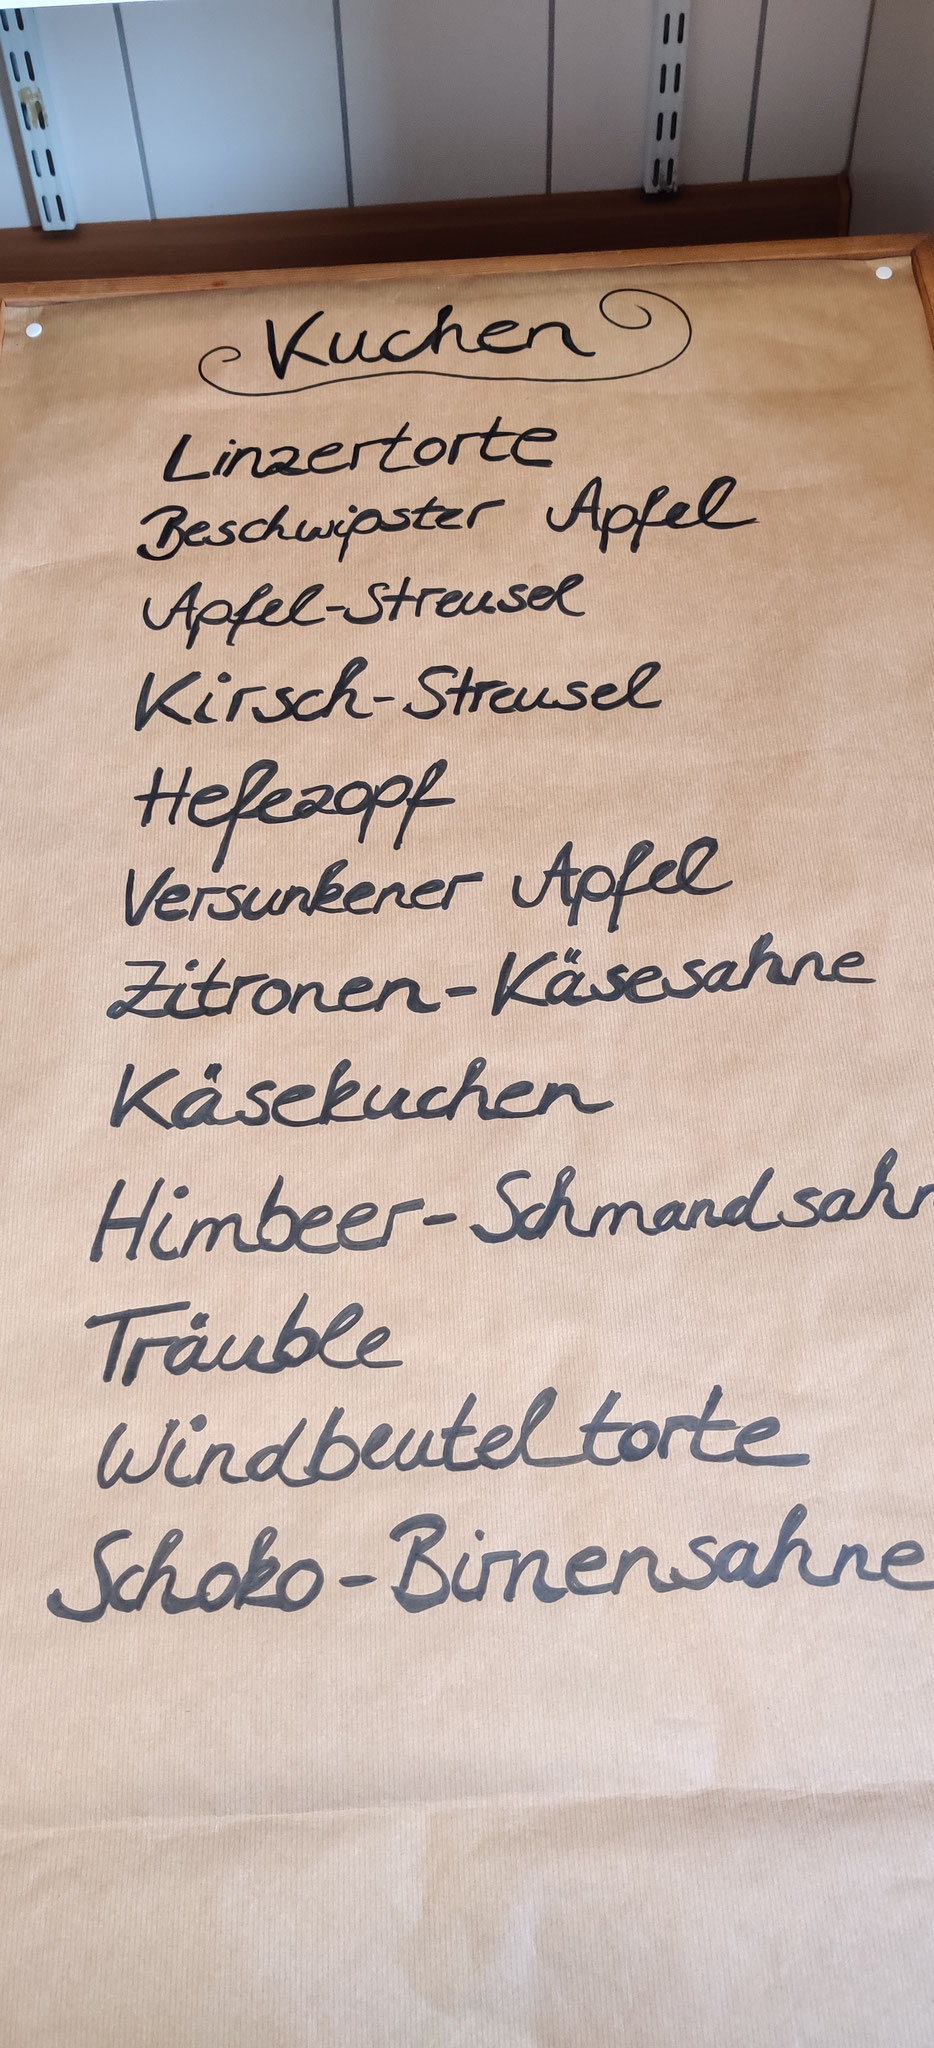 Kuchen
Linzertorte
Beschwipster Apfel
Apfel-Streusel
Kirsch-Streusel
Hefezopf
Versunkener Apfel
Zitronen-Käsesahne
Käsekuchen
Himbeer-Schmandsahn
Träuble
Windbeuteltorte
Schoko-Birnensahne